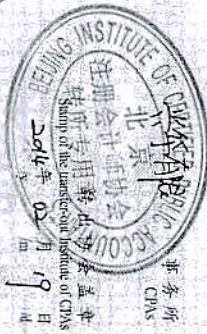 事务所
CPAs
BEIJING INSTITUTE OF CERTIFIED PUBLIC ACCOUNTANTS
北京
注册会计师协会
转所专用章
转出协会盖章
Stamp of the transfer-out Institute of CPAs
2014年 02月 19日
y m d